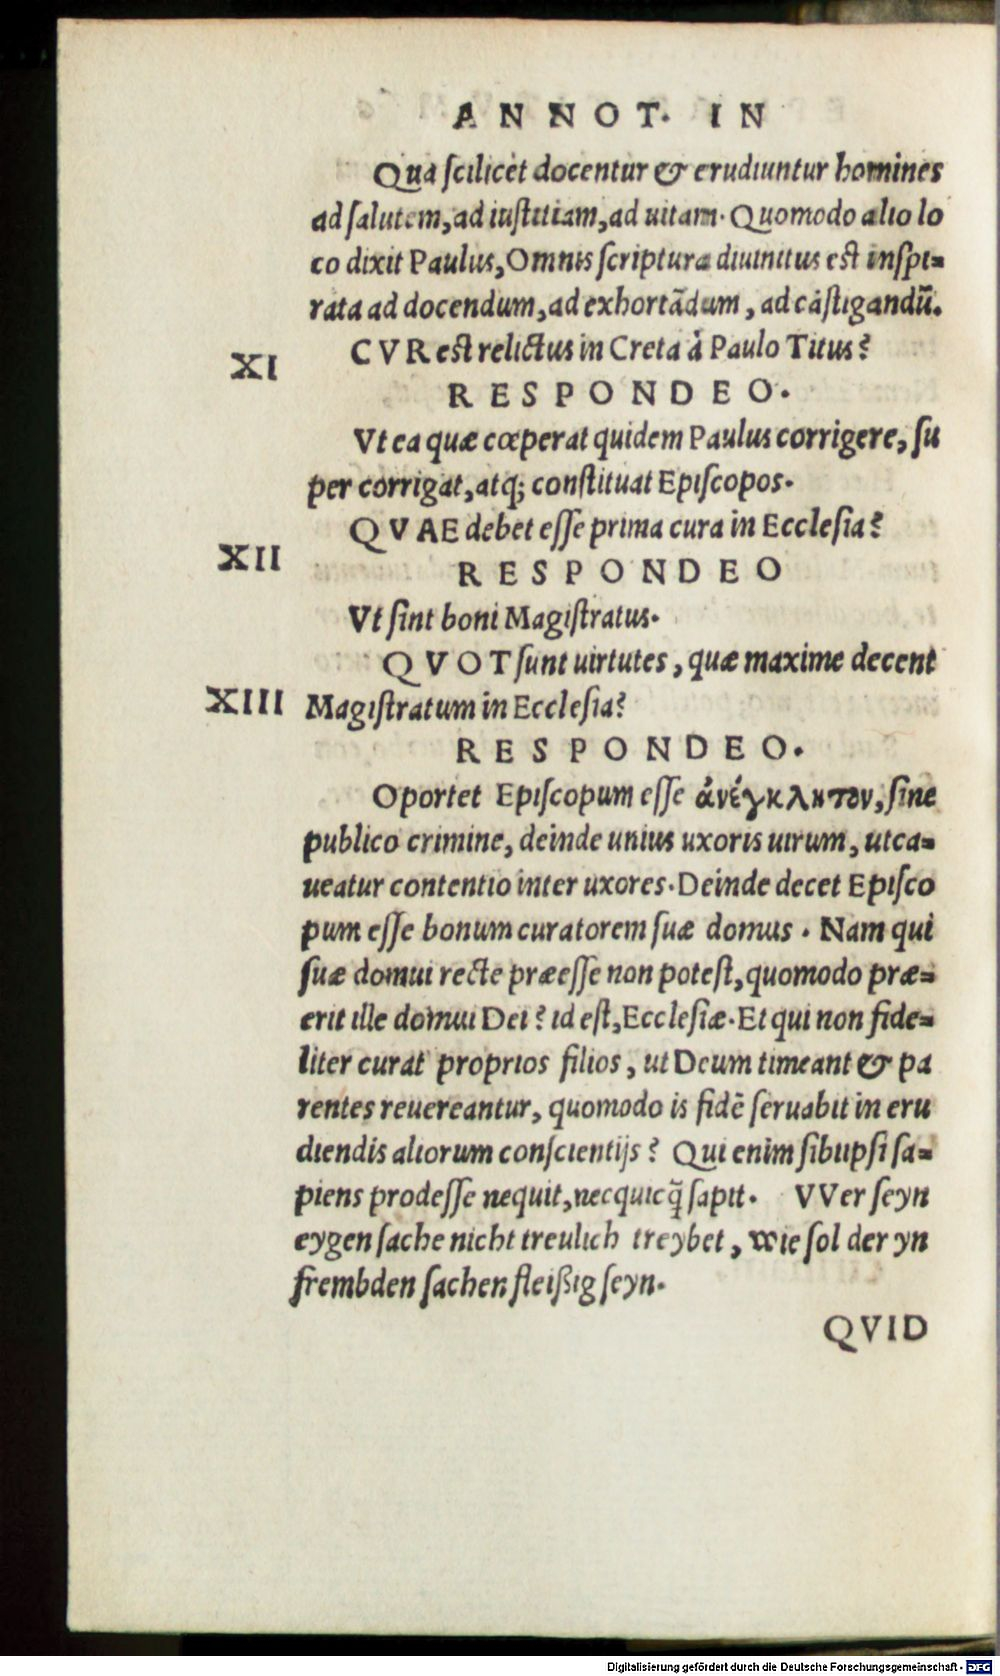 ANNOT. IN
Qua ſcilicet docentur & erudiuntur homines
ad ſalutem, ad iuſtitiam, ad uitam. Quomodo alio lo
co dixit Paulus, Omnis ſcriptura diuinitus eſt inſpi=
rata ad docendum, ad exhortãdum, ad caſtigandũ.
XI CVR eſt relictus in Creta à Paulo Titus?
RESPONDEO.
Vt ea quæ cœperat quidem Paulus corrigere, ſu
per corrigat, atq; conſtituat Epiſcopos.
QVAE debet eſſe prima cura in Eccleſia?
XII RESPONDEO
Vt ſint boni Magiſtratus.
QVOT ſunt uirtutes, quæ maxime decent
XIII Magiſtratum in Eccleſia?
RESPONDEO.
Oportet Epiſcopum eſſe ἀνέγκλητον, ſine
publico crimine, deinde unius uxoris uirum, ut ca=
ueatur contentio inter uxores. Deinde decet Epiſco
pum eſſe bonum curatorem ſuæ domus. Nam qui
ſuæ domui recte præeſſe non poteſt, quomodo præ=
erit ille domui Dei? id eſt, Eccleſiæ. Et qui non fide=
liter curat proprios filios, ut Deum timeant & pa
rentes reuereantur, quomodo is fidẽ ſeruabit in eru
diendis aliorum conſcientijs? Qui enim ſibiipſi ſa=
piens prodeſſe nequit, necquicq̃ ſapit. VVer ſeyn
eygen ſache nicht treulich treybet, wie ſol der yn
frembden ſachen fleißig ſeyn.
QVID
Digitalisierung gefördert durch die Deutsche Forschungsgemeinschaft - DFG